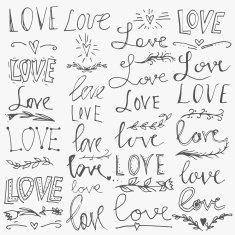 LOVE
LOVE
LOVE
Love
LOVE
LOVE
Love
Love
Love
love
LOVE
LOVE
LOVE
LOVE
love
Love
love
LOVE
love
love
LOVE
love
love
love
love
love
love